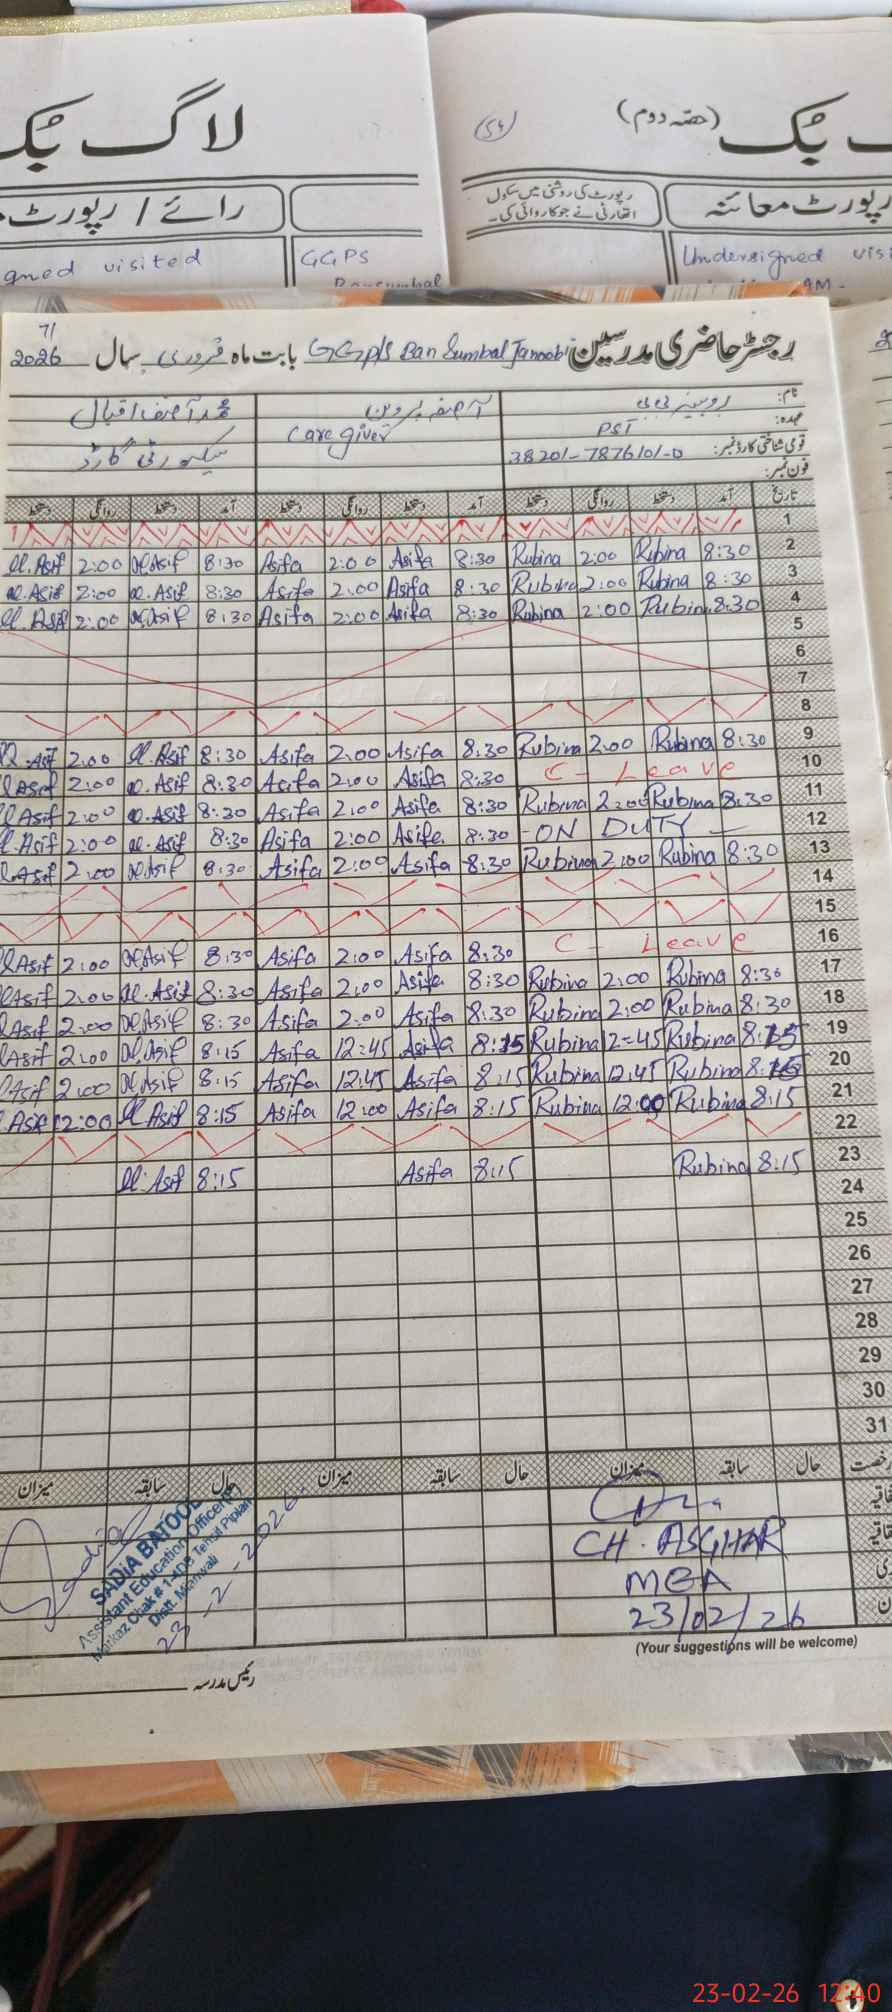 لاگ بک
رائے / رپورٹ
gned visited
GGPS
(54)
بک (حصہ دوم)
رپورٹ کی روشنی میں سکول
اتھارٹی نے جو کاروائی کی۔
رپورٹ معائنہ
Undersigned visi
AM-
رجسٹر حاضری مدرسین GGp/s Ban Sumbal Janoobi بابت ماہ فروری سال 2026
71
نام: روبینہ بی بی آصفہ پروین محمد آصف اقبال
عہدہ: PST Care giver سیکیورٹی گارڈ
قومی شناختی کارڈ نمبر: 38201-7876101-0
فون نمبر:
تاریخ آمد دستخط روانگی دستخط آمد دستخط روانگی دستخط آمد دستخط روانگی دستخط
1
M.Asif 2:00 M.Asif 8:30 Asifa 2:00 Asifa 8:30 Rubina 2:00 Rubina 8:30 2
M.Asif 2:00 M.Asif 8:30 Asifa 2:00 Asifa 8:30 Rubina 2:00 Rubina 8:30 3
M.Asif 2:00 M.Asif 8:30 Asifa 2:00 Asifa 8:30 Rubina 2:00 Rubina 8:30 4
5
6
7
8
M.Asif 2:00 M.Asif 8:30 Asifa 2:00 Asifa 8:30 Rubina 2:00 Rubina 8:30 9
M.Asif 2:00 M.Asif 8:30 Asifa 2:00 Asifa 8:30 C - Leave 10
M.Asif 2:00 M.Asif 8:30 Asifa 2:00 Asifa 8:30 Rubina 2:00 Rubina 8:30 11
M.Asif 2:00 M.Asif 8:30 Asifa 2:00 Asifa 8:30 - ON DUTY - 12
M.Asif 2:00 M.Asif 8:30 Asifa 2:00 Asifa 8:30 Rubina 2:00 Rubina 8:30 13
14
15
M.Asif 2:00 M.Asif 8:30 Asifa 2:00 Asifa 8:30 C - Leave 16
M.Asif 2:00 M.Asif 8:30 Asifa 2:00 Asifa 8:30 Rubina 2:00 Rubina 8:30 17
M.Asif 2:00 M.Asif 8:30 Asifa 2:00 Asifa 8:30 Rubina 2:00 Rubina 8:30 18
M.Asif 2:00 M.Asif 8:15 Asifa 12:45 Asifa 8:15 Rubina 12=45 Rubina 8:15 19
M.Asif 2:00 M.Asif 8:15 Asifa 12:45 Asifa 8:15 Rubina 12:45 Rubina 8:15 20
M.Asif 12:00 M.Asif 8:15 Asifa 12:00 Asifa 8:15 Rubina 12:00 Rubina 8:15 21
22
M.Asif 8:15 Asifa 8:15 Rubina 8:15 23
24
25
26
27
28
29
30
31
رخصت حال سابقہ میزان حال سابقہ میزان حال سابقہ میزان
Sadia
SADIA BATOOL
Assistant Education Officer
Markaz Chak # 1-4DB Tehsil Piplan
Distt. Mianwali
23-2-2026.
CH. ASGHAR
MEA
23/02/26
(Your suggestions will be welcome)
رئیس مدرسہ
23-02-26 12:40